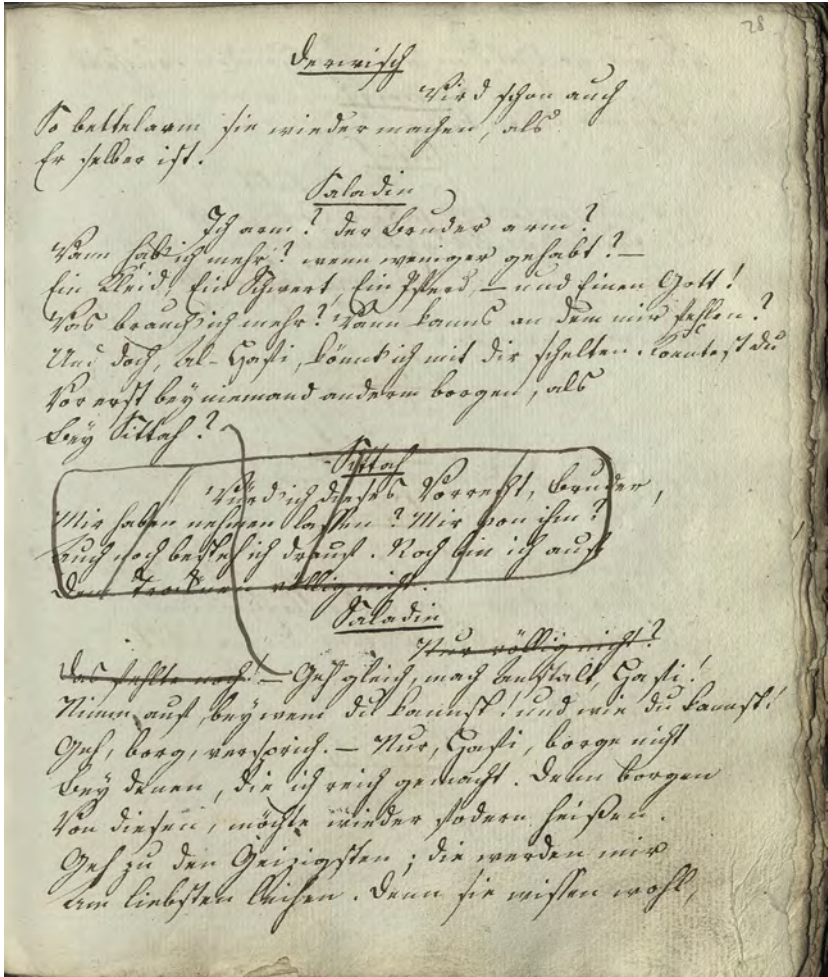 28
Derwisch
Wird schon auch
So bettelarm sie wieder machen, als
Er selber ist.
Saladin
Ich arm? der Bruder arm?
Wann hab' ich mehr? wenn weniger gehabt? —
Ein Kleid, Ein Schwert, Ein Pferd, — und Einen Gott!
Was brauch' ich mehr? Wann kanns an dem mir fehlen?
Und doch, Al-Hafi, könnt' ich mit dir schelten. Konntest du
Vor erst bey niemand anderm borgen, als
Bey Sittah?
Sittah
Würd' ich dieses Vorrecht, Bruder,
Mir haben nehmen lassen? Mir von ihm?
Auch noch besteh ich drauf. Noch bin ich auf
dem Trocknen völlig nicht.
Saladin
Nur völlig nicht?
Das fehlte noch! — Geh gleich, mach Anstalt, Hafi!
Nimm auf bey wem du kannst! und wie du kannst!
Geh, borg, versprich. — Nur, Hafi, borge nicht
Bey denen, die ich reich gemacht. Denn borgen
Von diesen, möchte wieder fodern heißen.
Geh zu den Geizigsten; die werden mir
Am liebsten leihen. Denn sie wissen wohl,